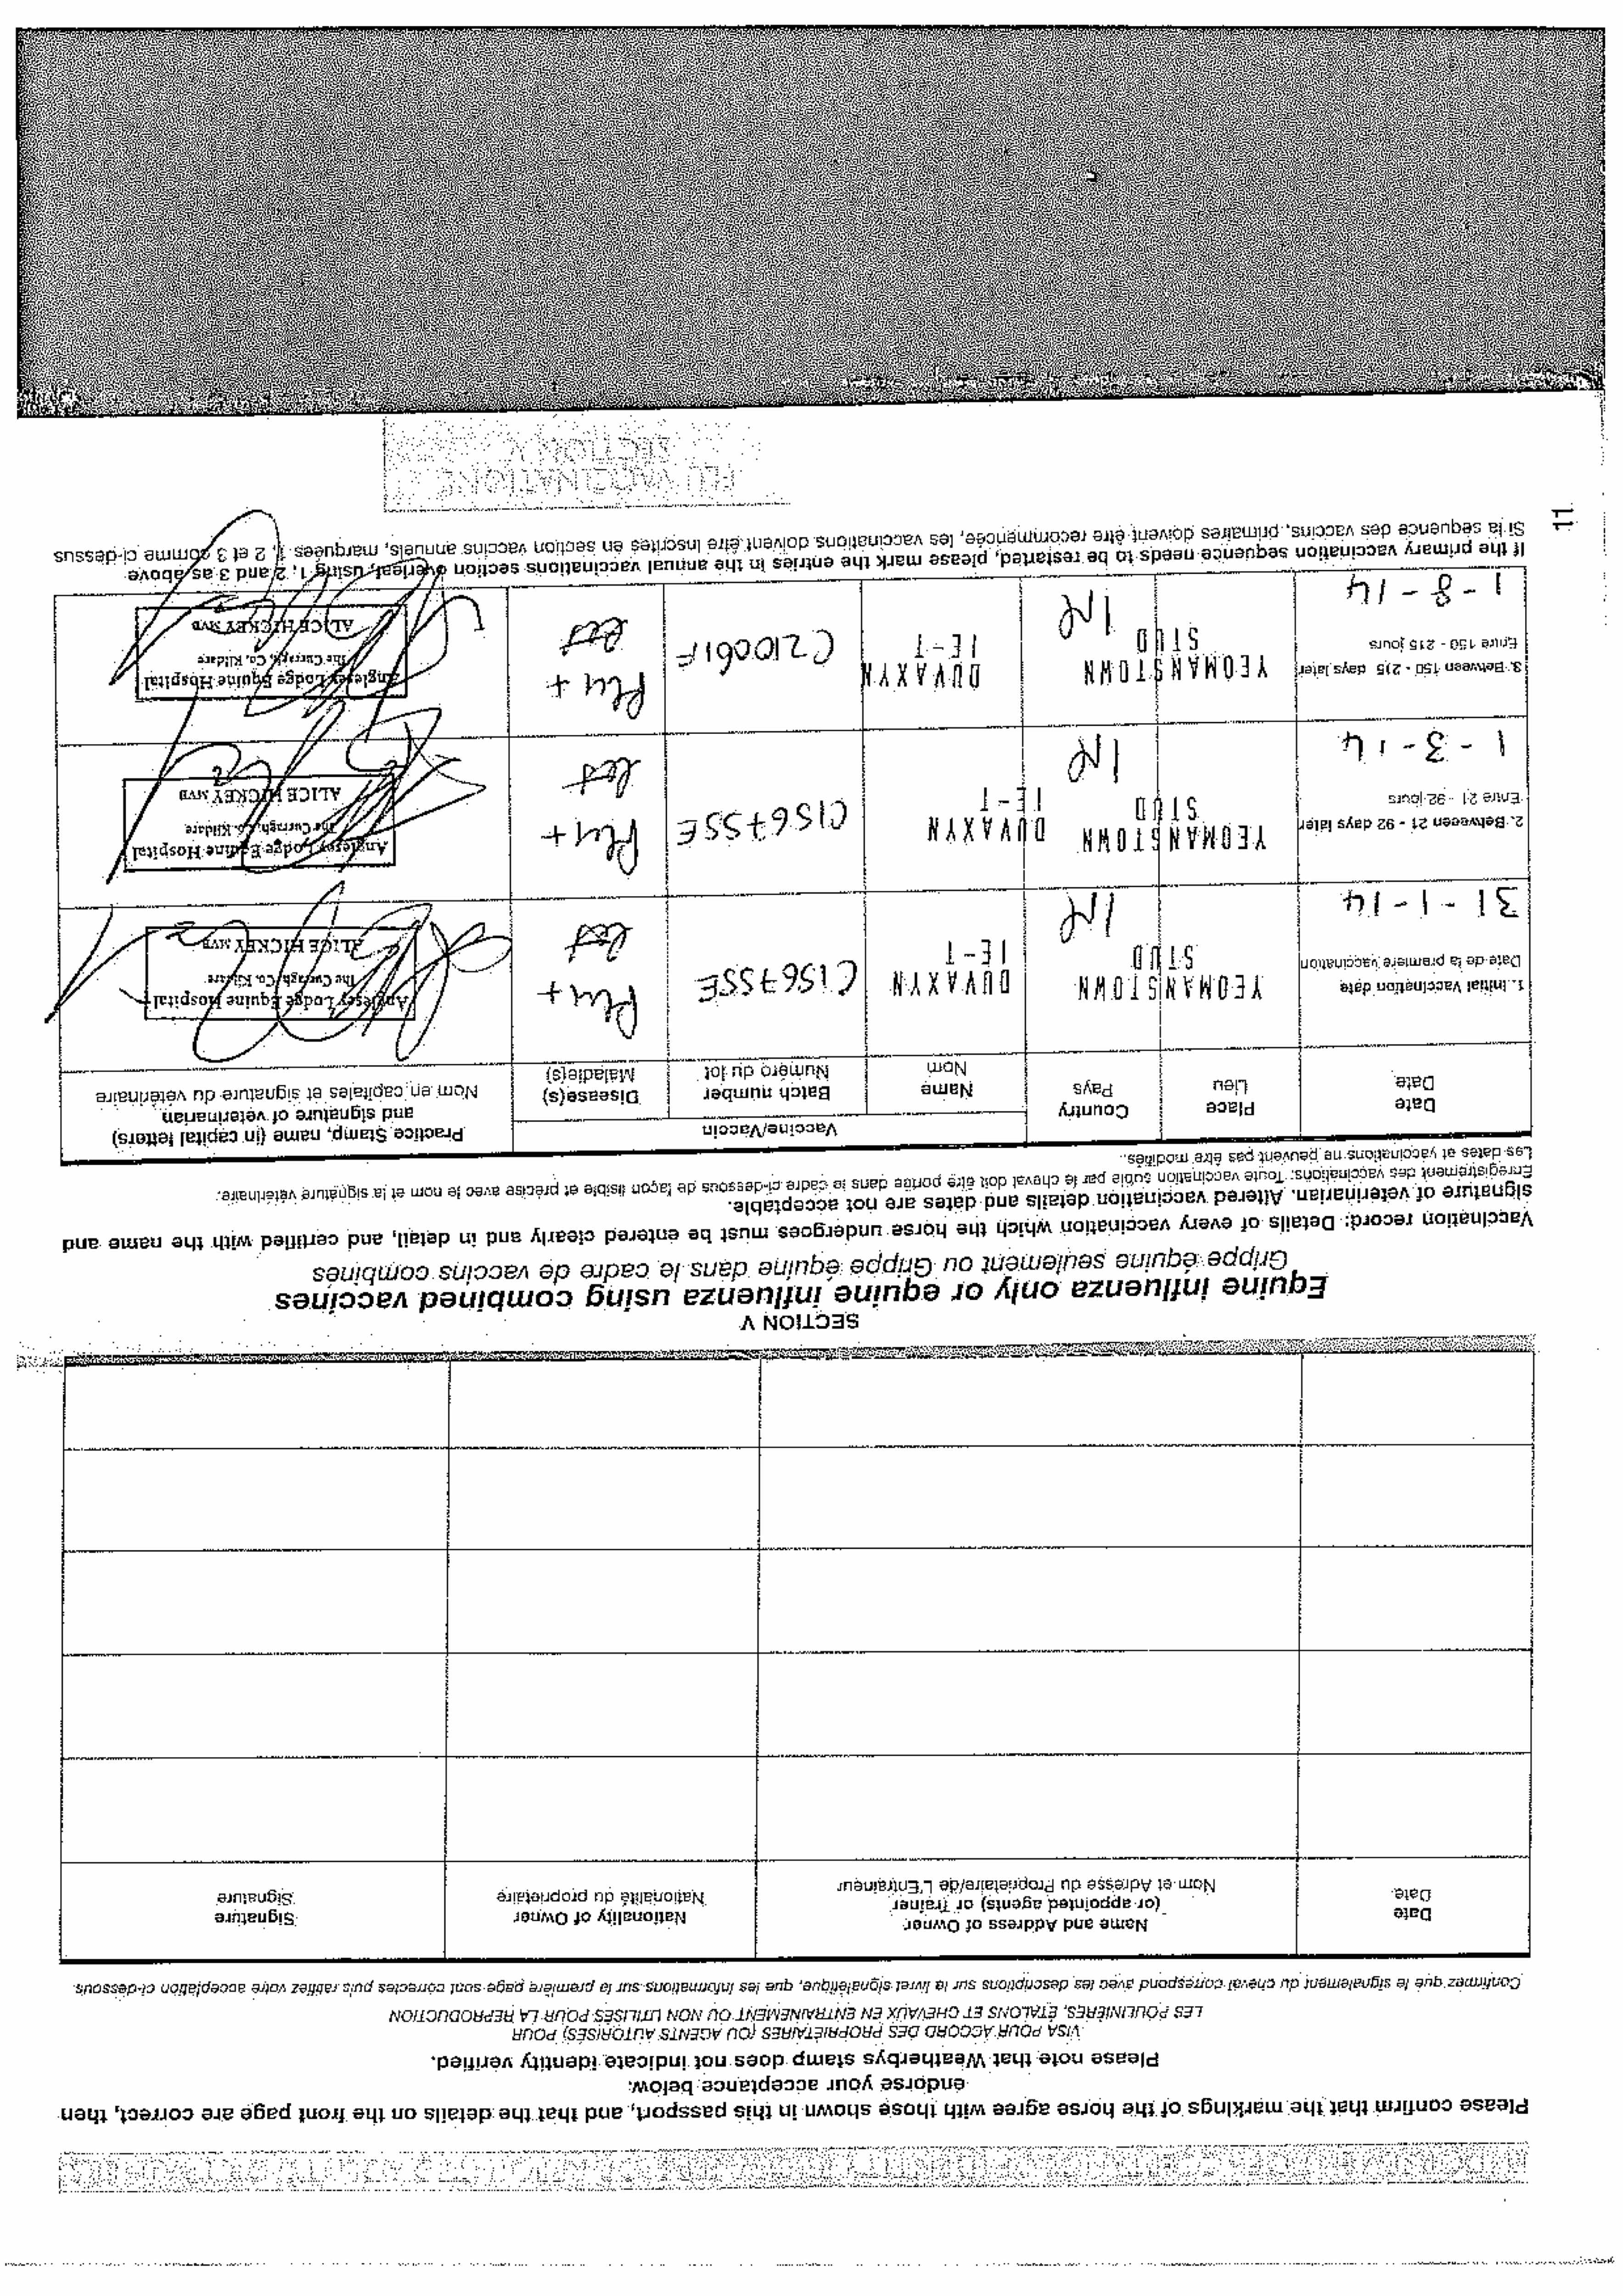 Please confirm that the markings of the horse agree with those shown in this passport, and that the details on the front page are correct, then
endorse your acceptance below.
Please note that Weatherbys stamp does not indicate identity verified.
VISA POUR ACCORD DES PROPRIÉTAIRES (OU AGENTS AUTORISÉS) POUR
LES POULINIÈRES, ÉTALONS ET CHEVAUX EN ENTRAINEMENT OU NON UTILISES POUR LA REPRODUCTION
Confirmez que le signalement du cheval correspond avec les descriptions sur le livret signalétique, que les informations sur la première page sont correctes puis ratifiez votre acceptation ci-dessous.
Date
Date
Name and Address of Owner
(or appointed agents) or Trainer
Nom et Adresse du Proprietaire/de L'Entraineur
Nationality of Owner
Nationalité du propriétaire
Signature
Signature
SECTION V
Equine influenza only or equine influenza using combined vaccines
Grippe équine seulement ou Grippe équine dans le cadre de vaccins combinés
Vaccination record: Details of every vaccination which the horse undergoes must be entered clearly and in detail, and certified with the name and
signature of veterinarian. Altered vaccination details and dates are not acceptable.
Enregistrement des vaccinations: Toute vaccination subie par le cheval doit être portée dans le cadre ci-dessous de façon lisible et précise avec le nom et la signature vétérinaire.
Les dates et vaccinations ne peuvent pas être modifiés.
Date
Date
Place
Lieu
Country
Pays
Vaccine/Vaccin
Name
Nom
Batch number
Numéro du lot
Disease(s)
Maladie(s)
Practice Stamp, name (in capital letters)
and signature of veterinarian
Nom en capitales et signature du vétérinaire
1. Initial Vaccination date
Date de la première vaccination
31-1-14
YEOMANSTOWN
STUD
IRE
DUVAXYN
IE-T
C156755E
Flu +
tet
Anglesey Lodge Equine Hospital
The Curragh, Co. Kildare
ALICE HICKEY MVB
2. Between 21 - 92 days later
Entre 21 - 92 jours
1-3-14
YEOMANSTOWN
STUD
IRE
DUVAXYN
IE-T
C156755E
Flu +
tet
Anglesey Lodge Equine Hospital
The Curragh, Co. Kildare
ALICE HICKEY MVB
3. Between 150 - 215 days later
Entre 150 - 215 jours
1-8-14
YEOMANSTOWN
STUD
IRE
DUVAXYN
IE-T
C210061F
Flu +
tet
Anglesey Lodge Equine Hospital
The Curragh, Co. Kildare
ALICE HICKEY MVB
If the primary vaccination sequence needs to be restarted, please mark the entries in the annual vaccinations section overleaf, using 1, 2 and 3 as above
Si la séquence des vaccins, primaires doivent être recommencée, les vaccinations doivent être inscrites en section vaccins annuels, marquées 1, 2 et 3 comme ci-dessus
11
FLU VACCINATIONS
SECTION V